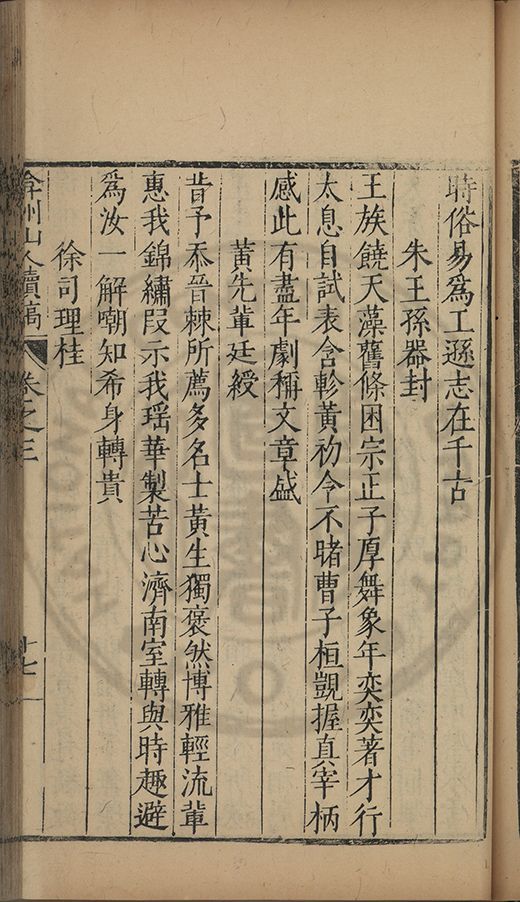 時俗易爲工遜志在千古
朱王孫器封
王族饒天藻舊條困宗正子厚舞象年奕奕著才行
太息自試表含軫黃初令不睹曹子桓覬握真宰柄
感此有盡年劇稱文章盛
黃先輩廷綬
昔予忝晉棘所薦多名士黃生獨褒然博雅輕流輩
惠我錦繡段示我瑶華製苦心濟南室轉與時趣避
爲汝一解嘲知希身轉貴
徐司理桂
弇州山人續稿 卷之三 十七